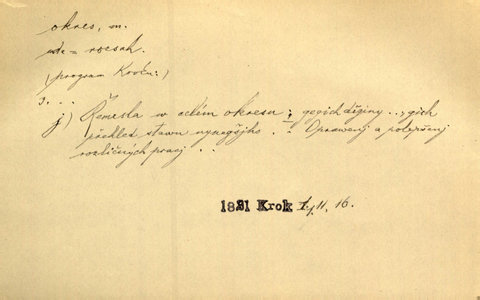 okres, m.
= rozsah.
(program Kroku:)
3. . .
j) Řemesla w celém okresu; gegich děginy . ., gich
přehled stawu nyněgšjho . . Oprawenj a polepšenj
rozličných pracj . .
1821 Krok I, II, 16.